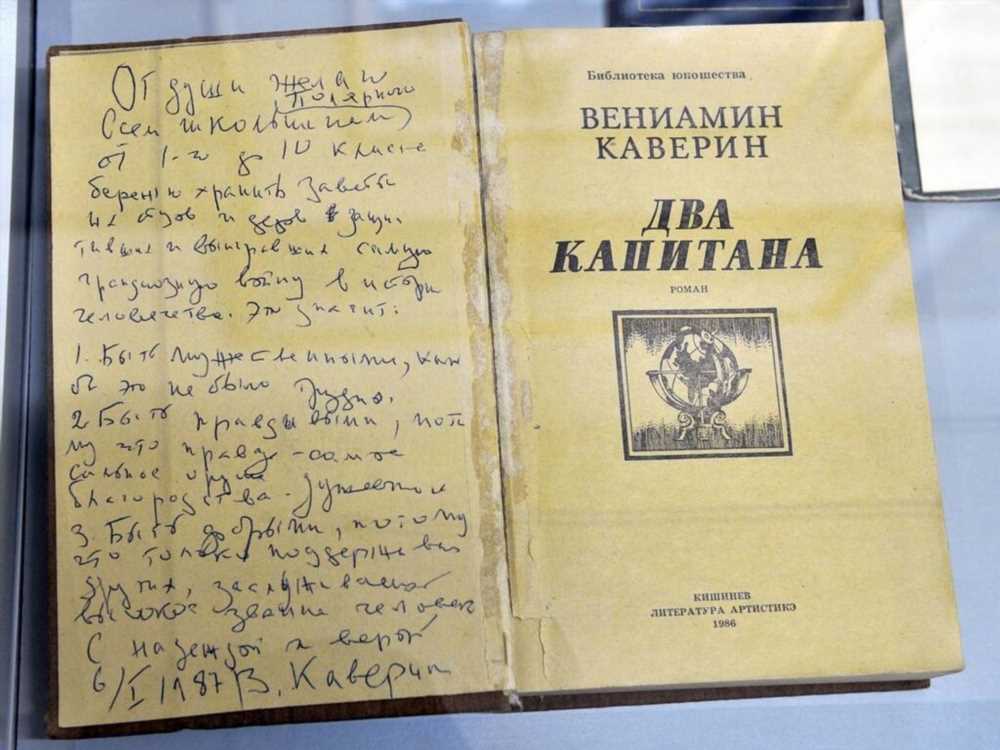 От души желаю
Полярного
всем школьникам
от 1-го до 10 класса
бережно хранить заветы
их отцов и дедов защи
тивших и выигравших самую
грандиозную войну в истори
человечества. Это значит:
1. Быть мужественными, как
бы это не было трудно.
2 Быть правдивыми, пото
му что правда - самое
сильное оружие
благородства
3 Быть добрыми, потому
что только поддерживая
других, заслуживают
высокое звание человек
С надеждой и верой
6/I 1987 В. Каверин
Библиотека юношества
ВЕНИАМИН
КАВЕРИН
ДВА
КАПИТАНА
РОМАН
КИШИНЕВ
ЛИТЕРАТУРА АРТИСТИКЭ
1986